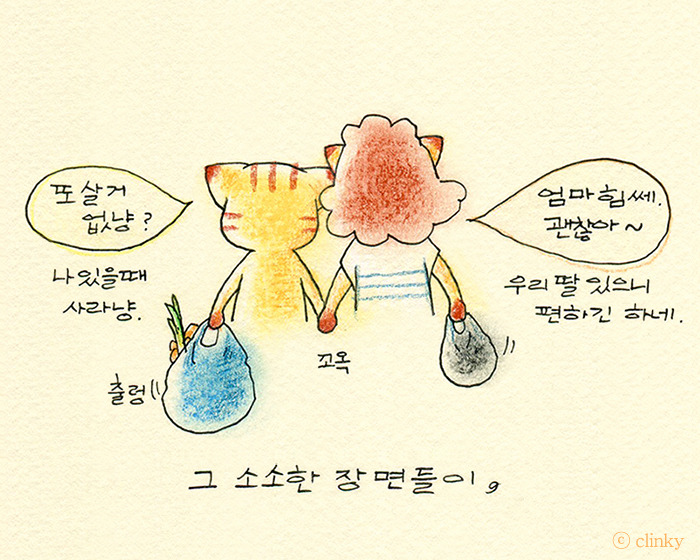 또 살거
없냥?
나 있을때
사라냥.
엄마 힘쎄.
괜찮아~
우리 딸 있으니
편하긴 하네.
출렁
꼬옥
그 소소한 장면들이,
ⓒ clinky